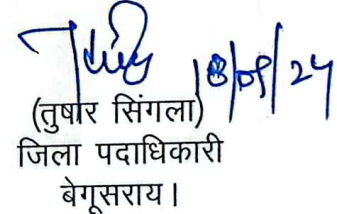 18/09/24
(तुषार सिंगला)
जिला पदाधिकारी
बेगूसराय।